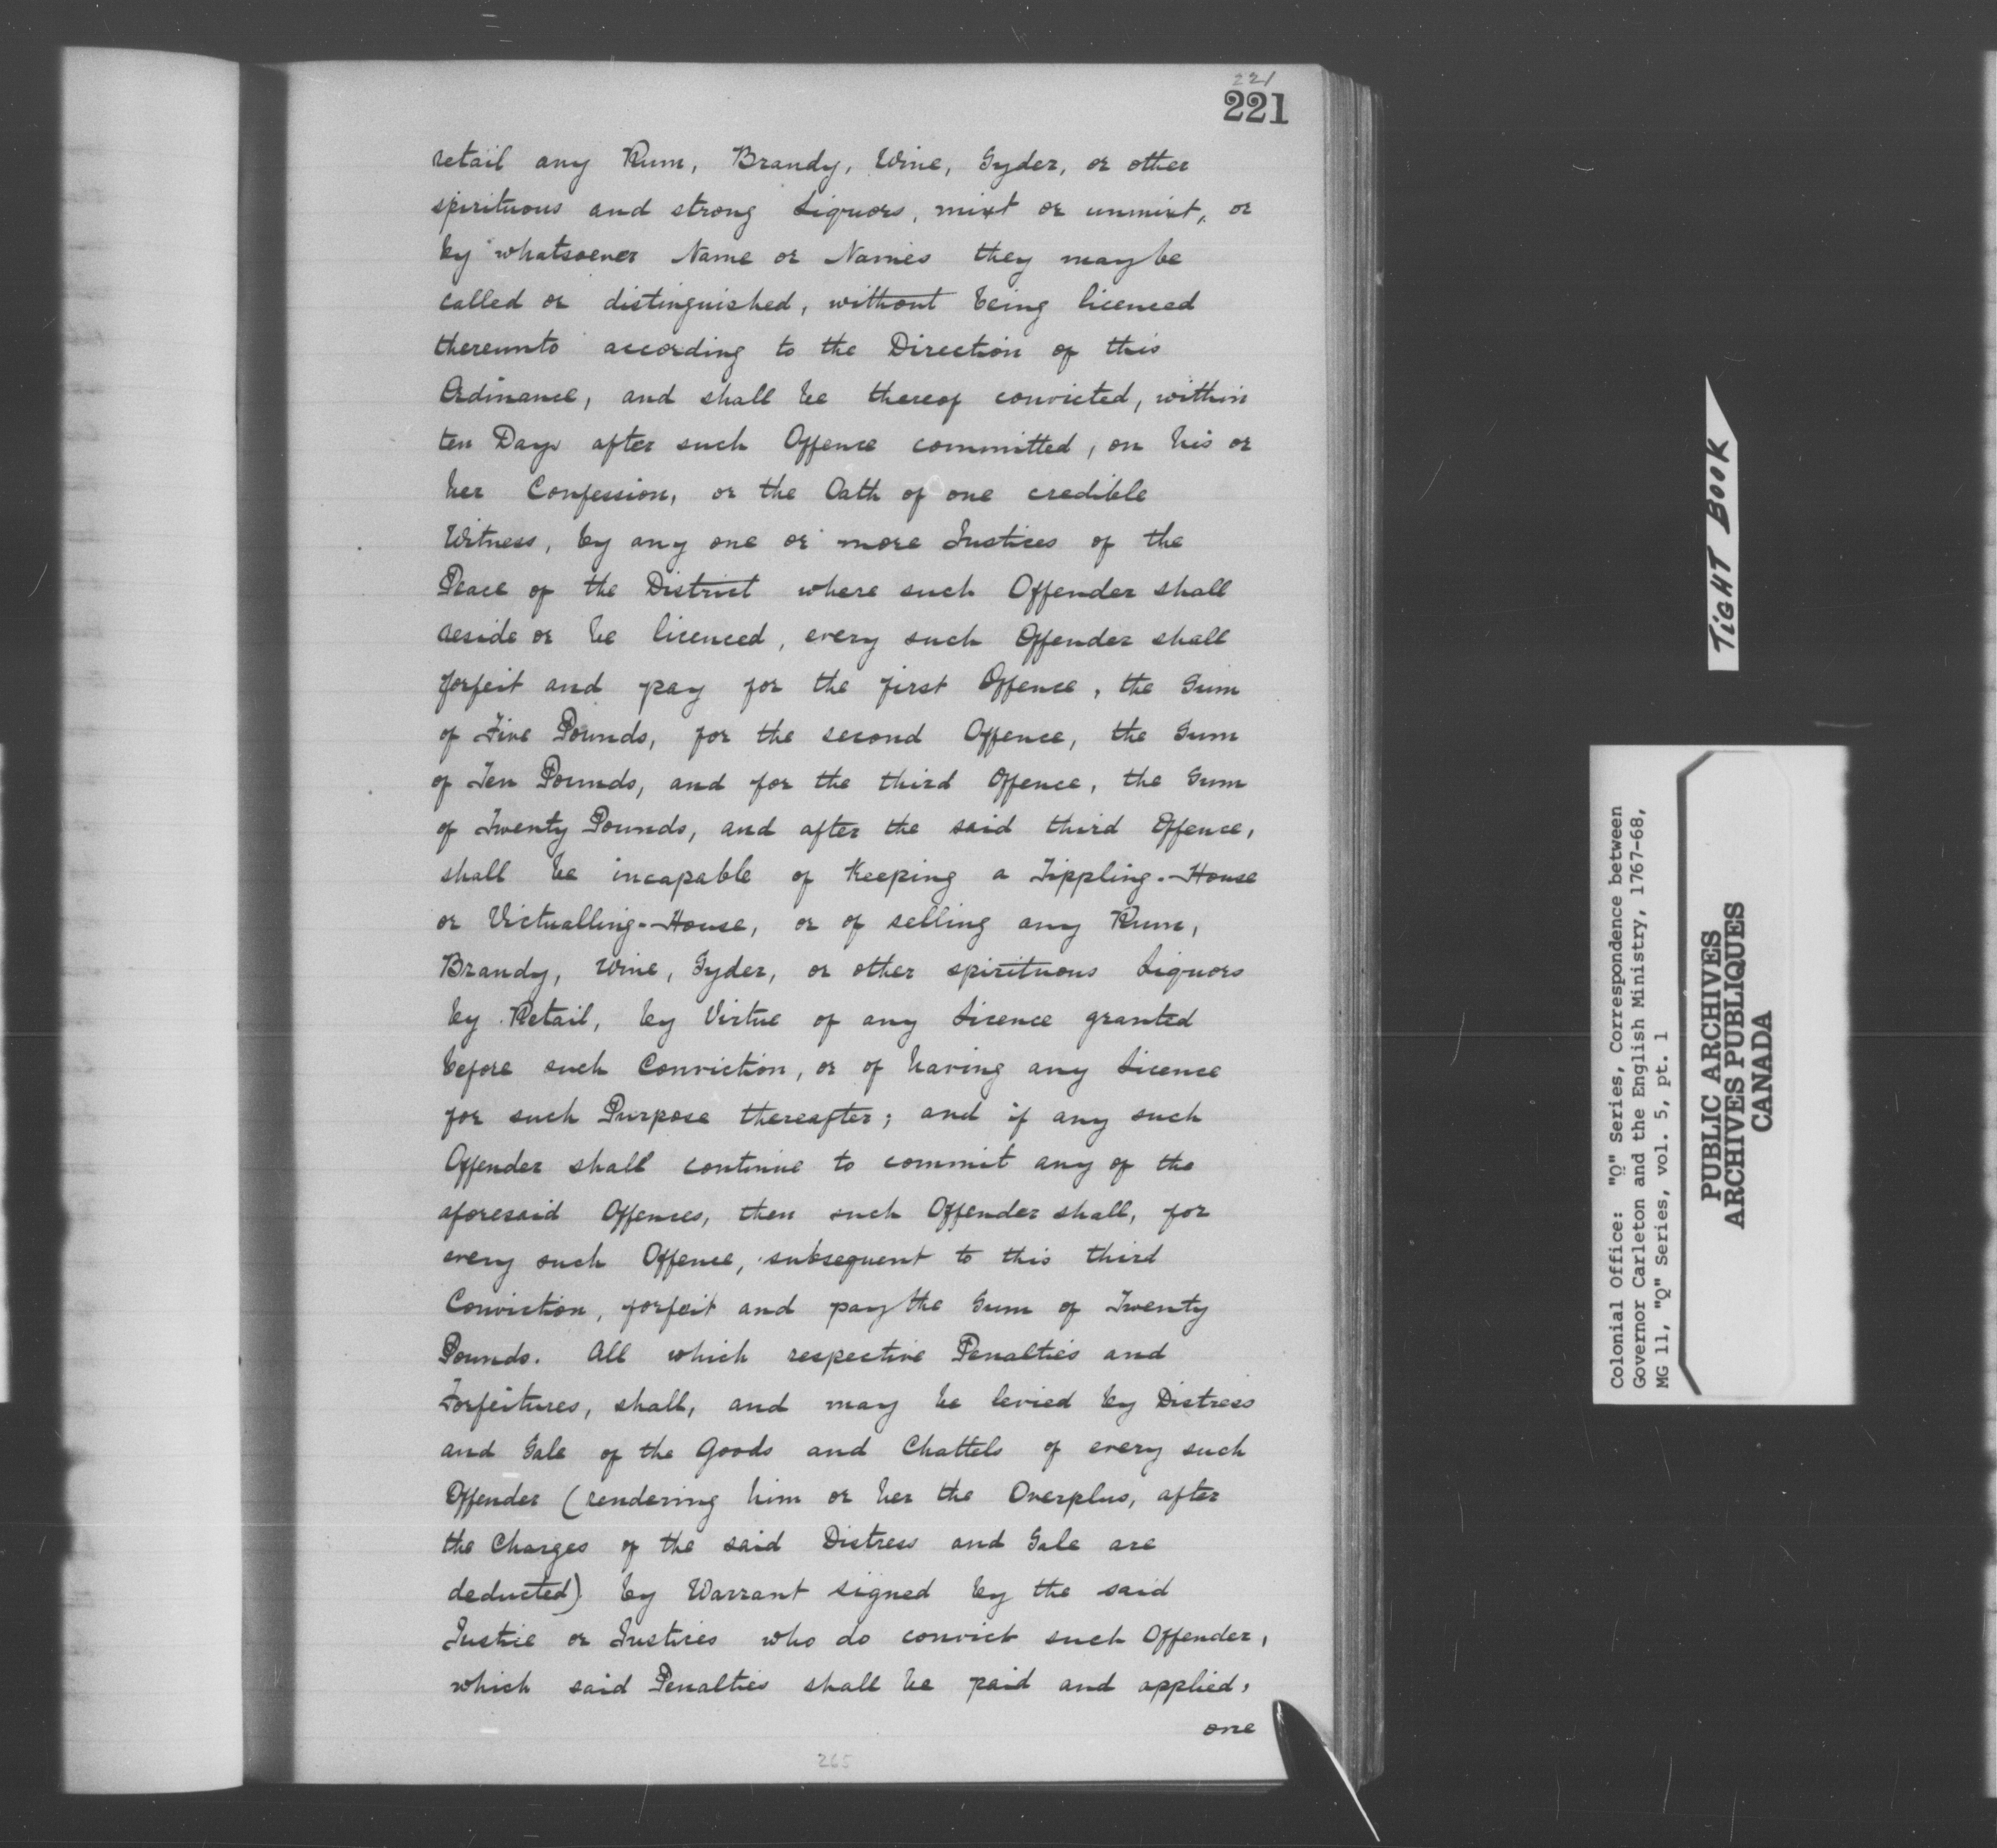 221
221
retail any Rum, Brandy, Wine, Syder, or other
spirituous and strong Liquors, mixt or unmixt, or
by whatsoever Name or Names they may be
called or distinguished, without being licenced
thereunto according to the Direction of this
Ordinance, and shall be thereof convicted, within
ten Days after such Offence committed, on his or
her Confession, or the Oath of one credible
Witness, by any one or more Justices of the
Peace of the District where such Offender shall
reside or be licenced, every such Offender shall
forfeit and pay for the first Offence, the Sum
of Five Pounds, for the second Offence, the Sum
of Ten Pounds, and for the third Offence, the Sum
of Twenty Pounds, and after the said third Offence,
shall be incapable of Keeping a Tippling-House
or Victualling-House, or of selling any Rum,
Brandy, Wine, Syder, or other spirituous Liquors
by Retail, by Virtue of any Licence granted
before such Conviction, or of having any Licence
for such Purpose thereafter; and if any such
Offender shall continue to commit any of the
aforesaid Offences, then such Offender shall, for
every such Offence, subsequent to this third
Conviction, forfeit and pay the Sum of Twenty
Pounds. All which respective Penalties and
Forfeitures, shall, and may be levied by Distress
and Sale of the Goods and Chattels of every such
Offender (rendering him or her the Overplus, after
the Charges of the said Distress and Sale are
deducted) by Warrant signed by the said
Justie or Justices who do convict such Offender,
which said Penalties shall be paid and applied,
one
265
TIGHT BOOK
Colonial Office: "Q" Series, Correspondence between
Governor Carleton and the English Ministry, 1767-68,
MG 11, "Q" Series, vol. 5, pt. 1
PUBLIC ARCHIVES
ARCHIVES PUBLIQUES
CANADA